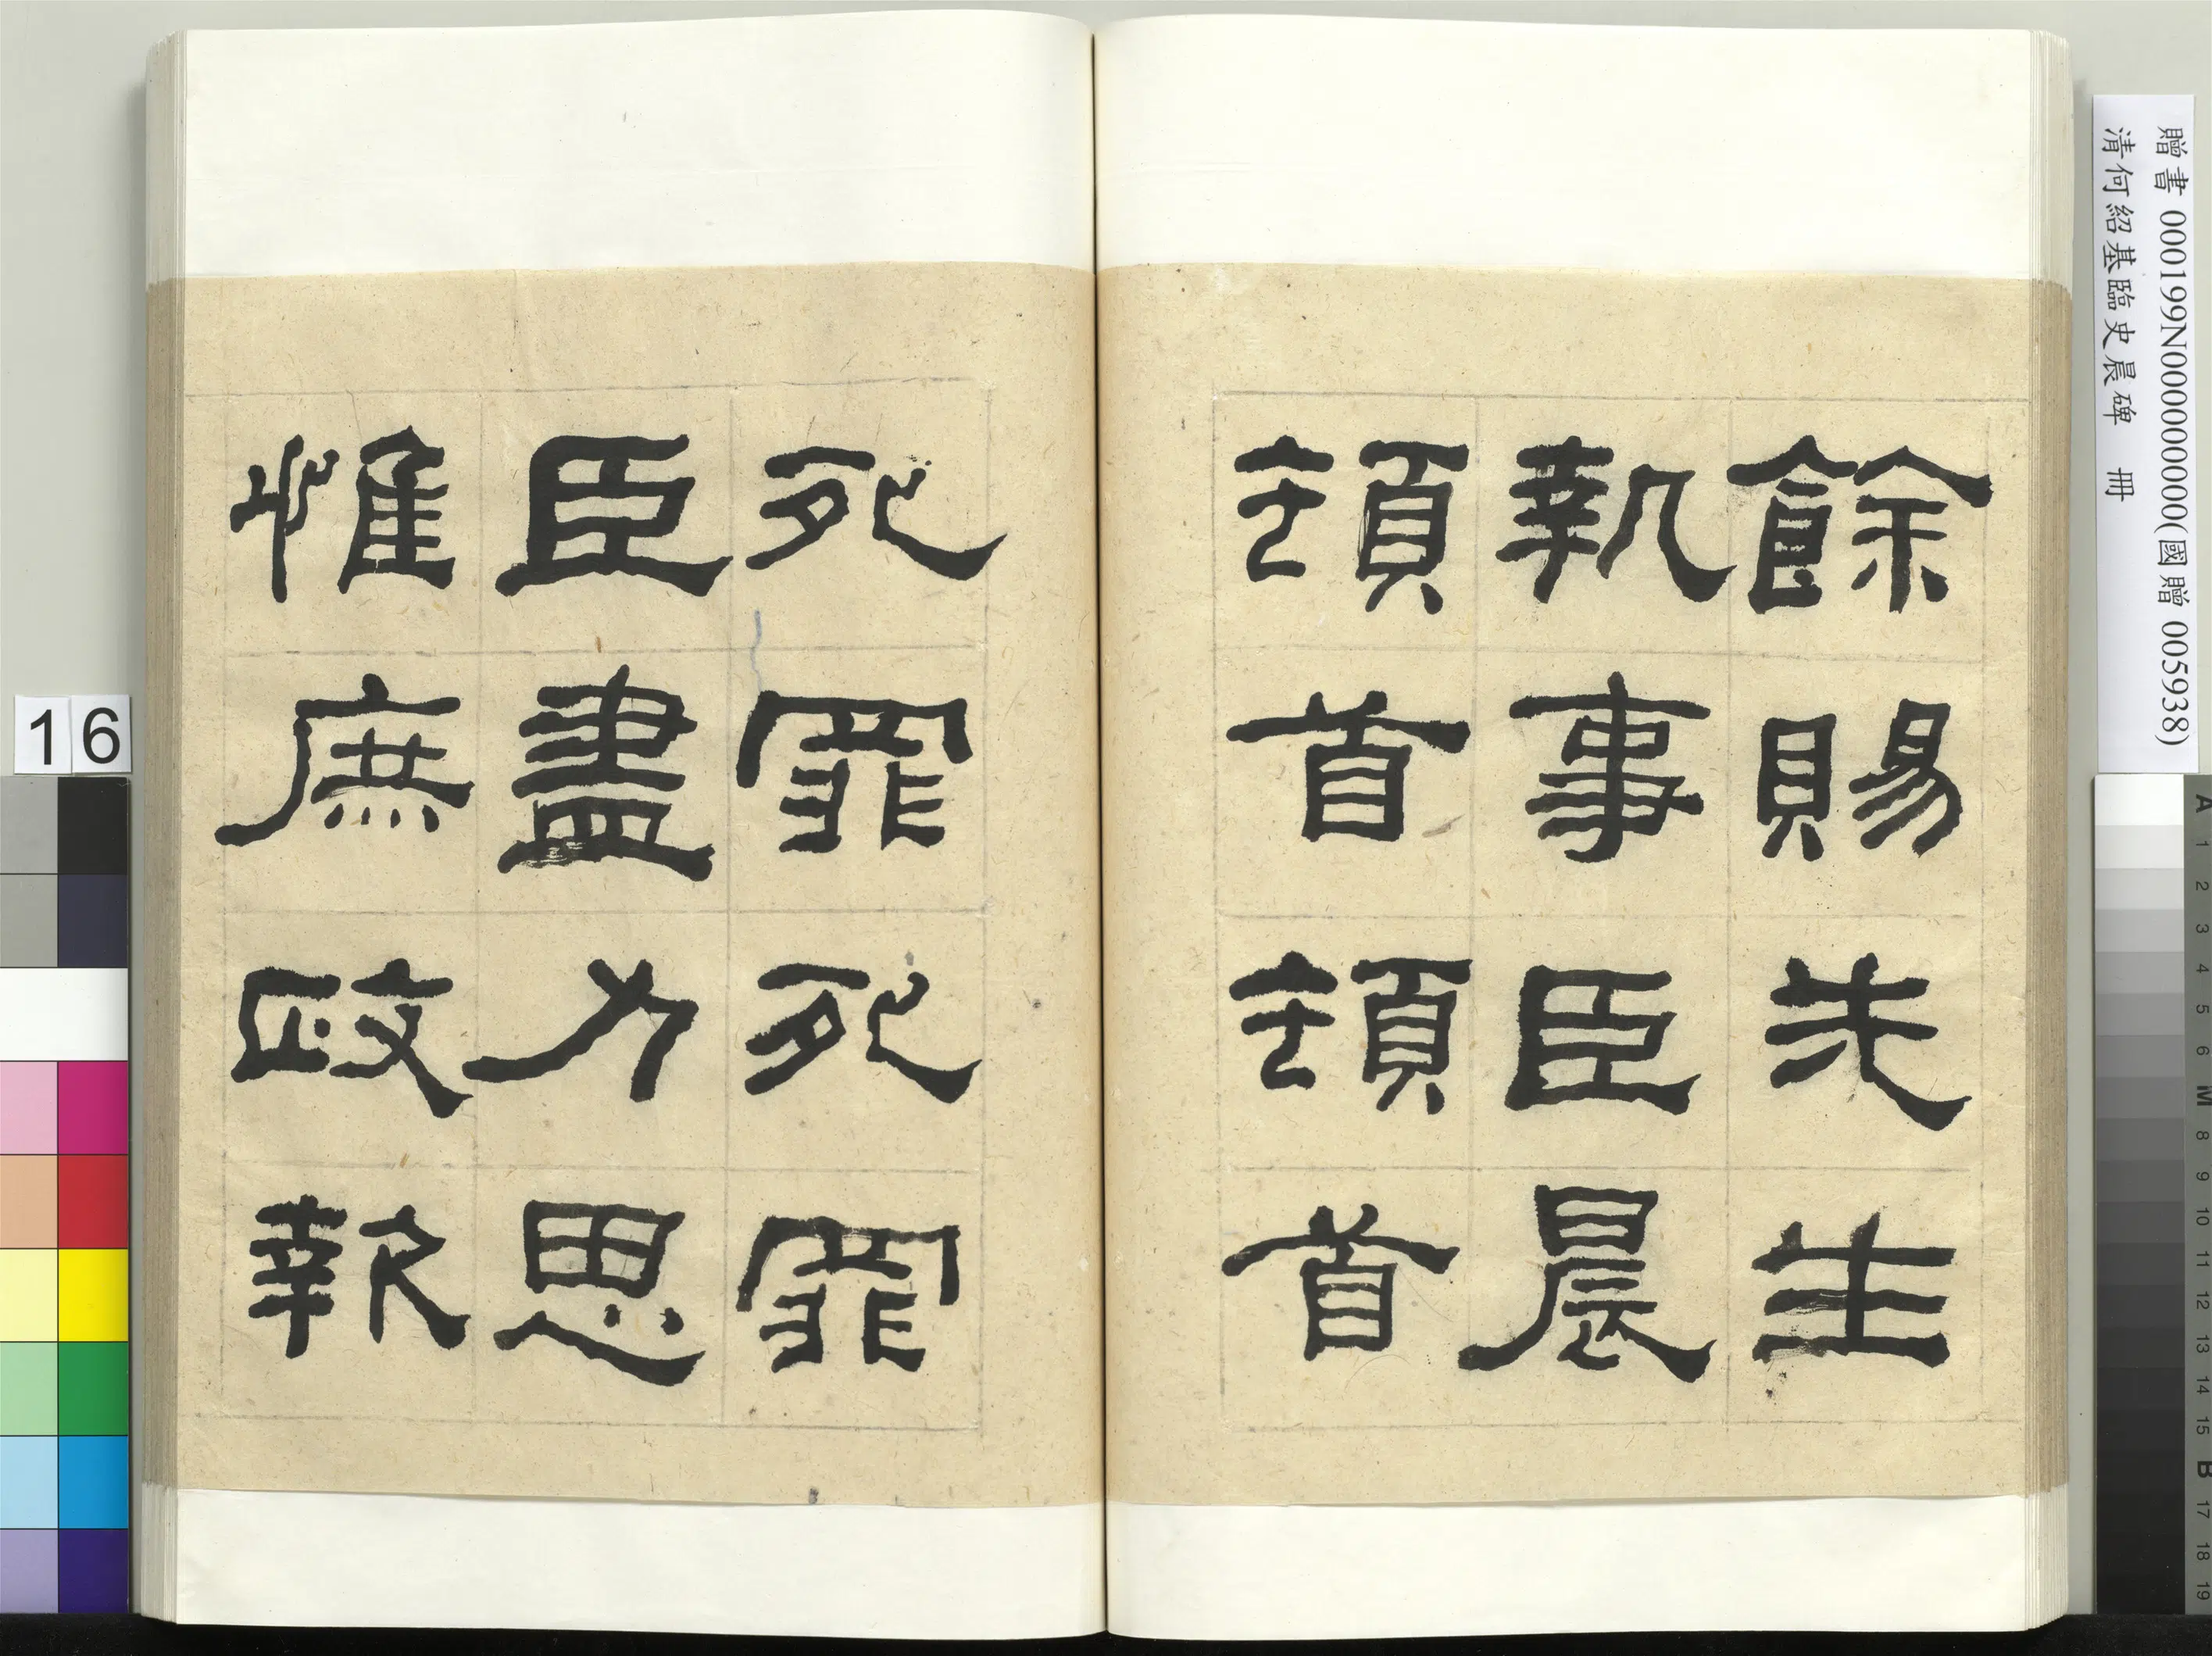 餘賜先生
執事臣晨
頓首頓首
死罪死罪
臣盡力思
惟庶政報
贈書 000199N000000000(國贈 005938)
清何紹基臨史晨碑 冊
16
A 1 2 3 4 5 6 M 8 9 10 11 12 13 14 15 B 17 18 19